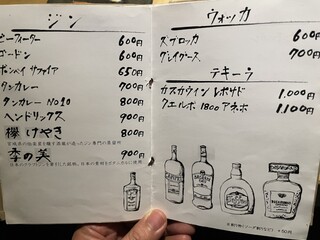 ジン
ビーフィーター 600円
ゴードン 600円
ボンベイ サファイア 650円
タンカレー 700円
タンカレー No10 800円
ヘンドリックス 900円
欅 けやき 800円
季の美 900円
ウォッカ
ズブロッカ 600円
グレイグース 700円
テキーラ
カスカウイン レポサド 1,000円
クエルボ 1800 アネホ 1,100円